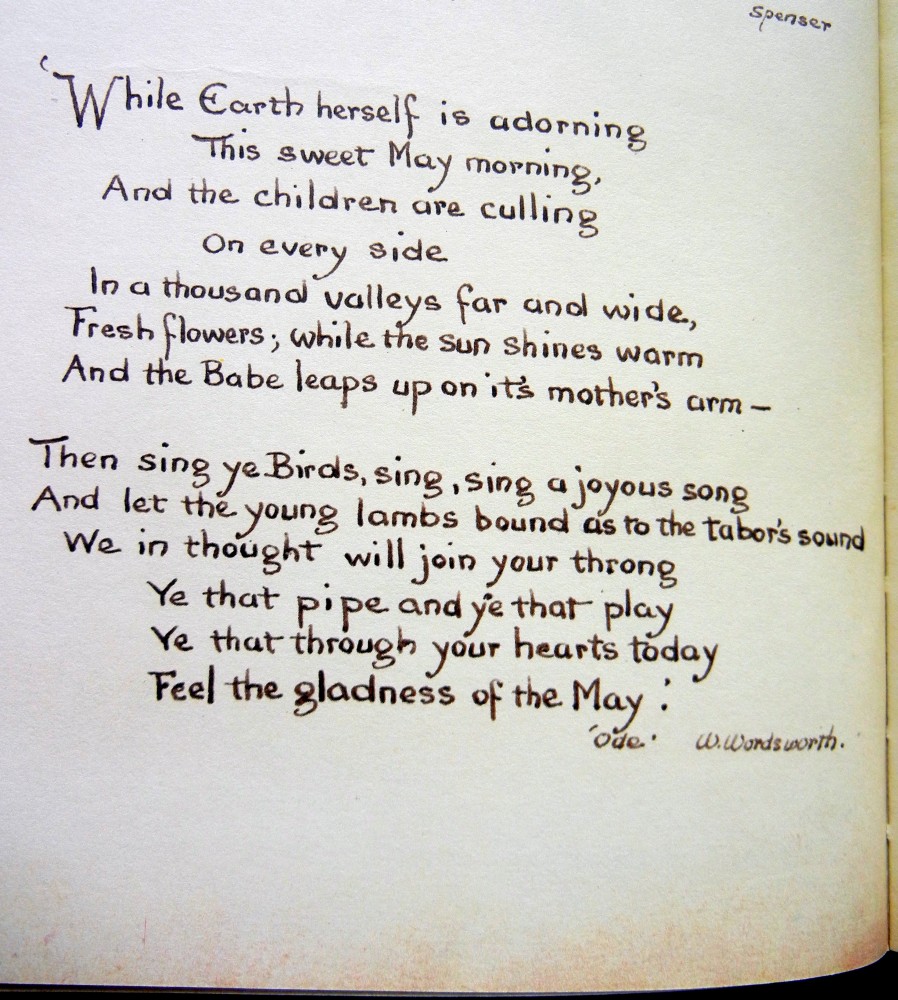 Spenser
'While Earth herself is adorning
This sweet May morning,
And the children are culling
On every side
In a thousand valleys far and wide,
Fresh flowers; while the sun shines warm
And the Babe leaps up on it's mother's arm –
Then sing ye Birds, sing, sing a joyous song
And let the young lambs bound as to the tabor's sound
We in thought will join your throng
Ye that pipe and ye that play
Ye that through your hearts today
Feel the gladness of the May.'
'Ode.' W. Wordsworth.